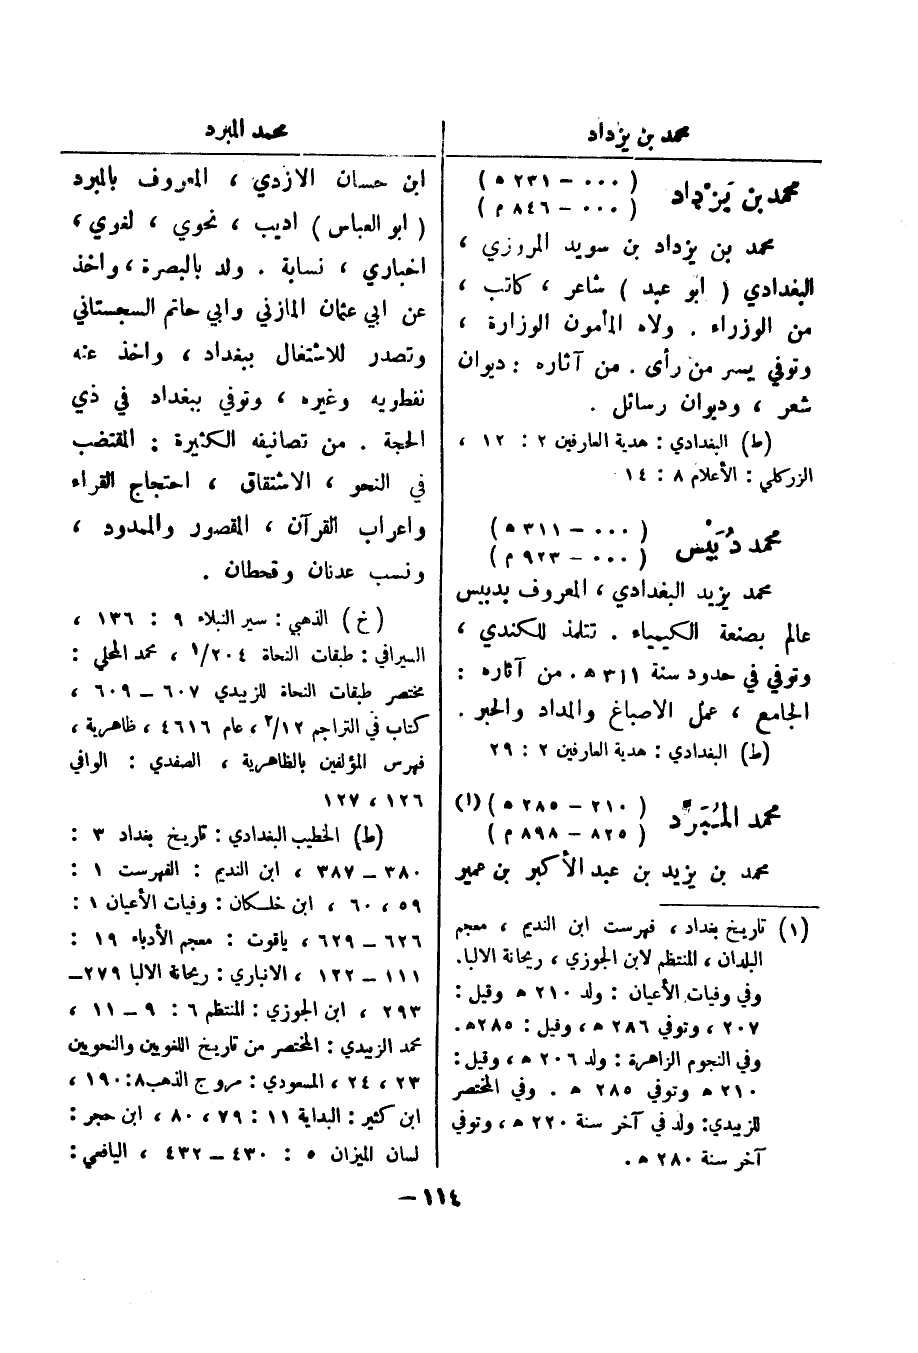 محمد بن يزداد
محمد المبرد
محمد بن يَزْداد
( ٠٠٠ – ٢٣١ ھ )
( ٠٠٠ – ٨٤٦ م )
محمد بن يزداد بن سويد المروزي ،
البغدادي ( ابو عبد ) شاعر ، كاتب ،
من الوزراء . ولاه المأمون الوزارة ،
وتوفي بسر من رأى . من آثاره : ديوان
شعر ، وديوان رسائل .
(ط) البغدادي : هدية العارفين ٢ : ١٢ ،
الزركلي : الأعلام ٨ : ١٤
محمد دُبَيْس
( ٠٠٠ – ٣١١ ھ )
( ٠٠٠ – ٩٢٣ م )
محمد يزيد البغدادي ، المعروف بدبيس
عالم بصنعة الكيمياء . تتلمذ للكندي ،
وتوفي في حدود سنة ٣١١ ھ . من آثاره :
الجامع ، عمل الاصباغ والمداد والحبر .
(ط) البغدادي : هدية العارفين ٢ : ٢٩
محمد المُبَرِّد
( ٢١٠ – ٢٨٥ ھ ) (١)
( ٨٢٥ – ٨٩٨ م )
محمد بن يزيد بن عبد الأكبر بن عمير
(١) تاريخ بغداد ، فهرست ابن النديم ، معجم
البلدان ، المنتظم لابن الجوزي ، ريحانة الالبا.
وفي وفيات الأعيان : ولد ٢١٠ ھ وقيل :
٢٠٧ ، وتوفي ٢٨٦ ھ ، وقيل : ٢٨٥ھ.
وفي النجوم الزاهرة : ولد ٢٠٦ ھ ، وقيل :
٢١٠ ھ وتوفي ٢٨٥ ھ . وفي المختصر
للزبيدي: ولد في آخر سنة ٢٢٠ ھ ، وتوفي
آخر سنة ٢٨٠ ھ .
ابن حسان الازدي ، المعروف بالمبرد
( ابو العباس ) اديب ، نحوي ، لغوي ،
اخباري ، نسابة . ولد بالبصرة ، واخذ
عن ابي عثمان المازني وابي حاتم السجستاني
وتصدر للاشتغال ببغداد ، واخذ عنه
نفطريه وغيره ، وتوفي ببغداد في ذي
الحجة . من تصانيفه الكثيرة : المقتضب
في النحو ، الاشتقاق ، احتجاج القراء
واعراب القرآن ، المقصور والممدود ،
ونسب عدنان وقحطان .
(خ) الذهبي : سير النبلاء ٩ : ١٣٦ ،
السيرافي : طبقات النحاة ١/٢٠٤ ، محمد المحلي :
مختصر طبقات النحاة للزبيدي ٦٠٧ – ٦٠٩ ،
كتاب في التراجم ٢/١٢ ، عام ٤٦١٦ ، ظاهرية ،
فهرس المؤلفين بالظاهرية ، الصفدي : الوافي
١٢٦ ، ١٢٧
(ط) الخطيب البغدادي : تاريخ بغداد ٣ :
٣٨٠ – ٣٨٧ ، ابن النديم : الفهرست ١ :
٥٩ ، ٦٠ ، ابن خلكان : وفيات الأعيان ١ :
٦٢٦ – ٦٢٩ ، ياقوت : معجم الأدباء ١٩ :
١١١ – ١٢٢ ، الانباري : ريحانة الالبا ٢٧٩–
٢٩٣ ، ابن الجوزي : المنتظم ٦ : ٩ – ١١ ،
محمد الزبيدي : المختصر من تاريخ اللغويين والنحويين
٢٣ ، ٢٤ ، المسعودي : مروج الذهب٨: ١٩٠ ،
ابن كثير : البداية ١١ : ٧٩ ، ٨٠ ، ابن حجر :
لسان الميزان ٥ : ٤٣٠ – ٤٣٢ ، اليافعي :
١١٤–